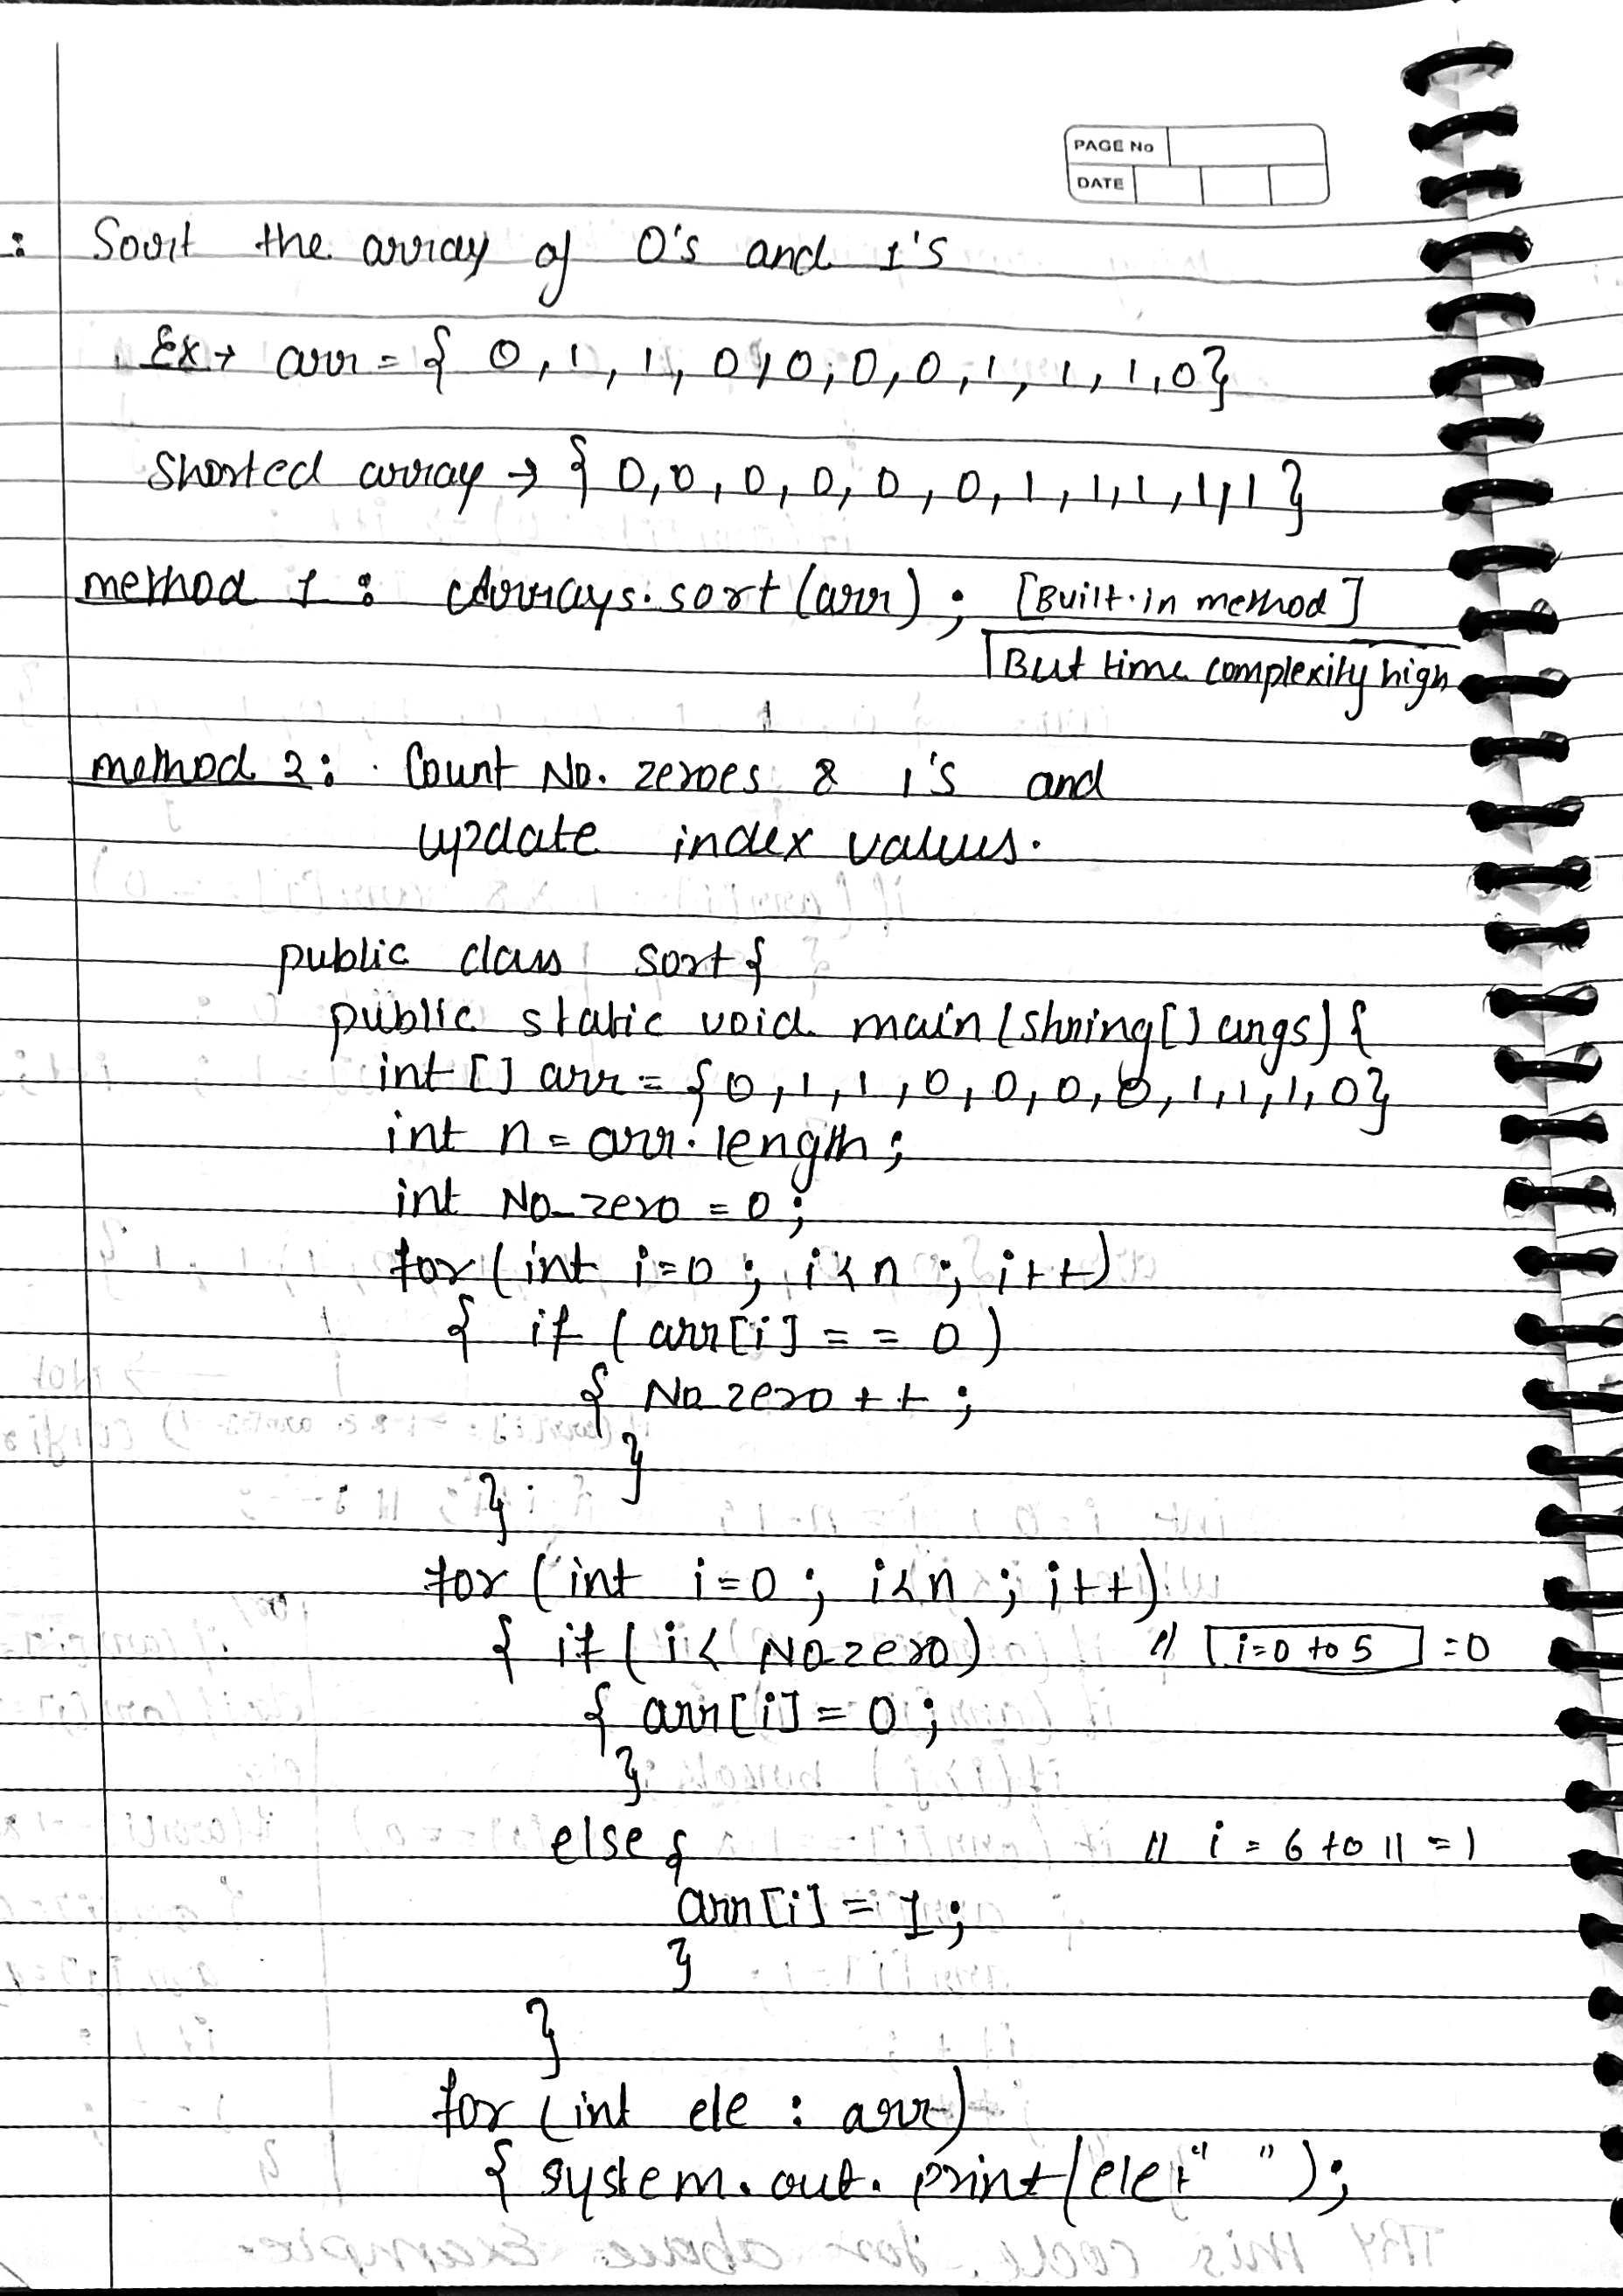 PAGE No
DATE
: Sort the array of 0's and 1's
Ex → arr = { 0, 1, 1, 0, 0, 0, 0, 1, 1, 1, 0}
Shorted array → { 0, 0, 0, 0, 0, 0, 1, 1, 1, 1, 1 }
method 1 : Arrays.sort (arr) ; [Built-in method]
But time complexity high
method 2 : Count No. zeroes & 1's and
update index values.
public class sort {
public static void main (string[] args) {
int [] arr = {0, 1, 1, 0, 0, 0, 0, 1, 1, 1, 0}
int n = arr.length ;
int No_zero = 0 ;
for (int i=0 ; i<n ; i++)
{ if (arr[i] == 0)
{ No_zero ++ ;
}
}
for (int i=0 ; i<n ; i++)
{ if (i< No_zero) // [i=0 to 5] =0
{ arr[i] = 0 ;
}
else { // i = 6 to 11 = 1
arr[i] = 1 ;
}
}
for (int ele : arr)
{ system.out.print(ele+" ");